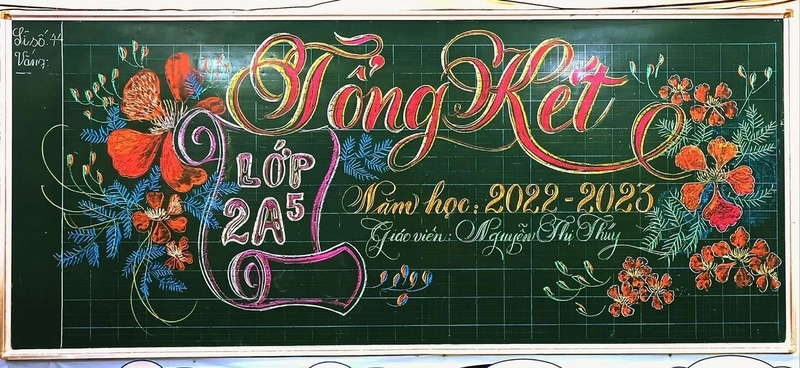 Sĩ số: 44
Vắng:
Tổng Kết
LỚP
2A5
Năm học: 2022-2023
Giáo viên: Nguyễn Thị Thúy